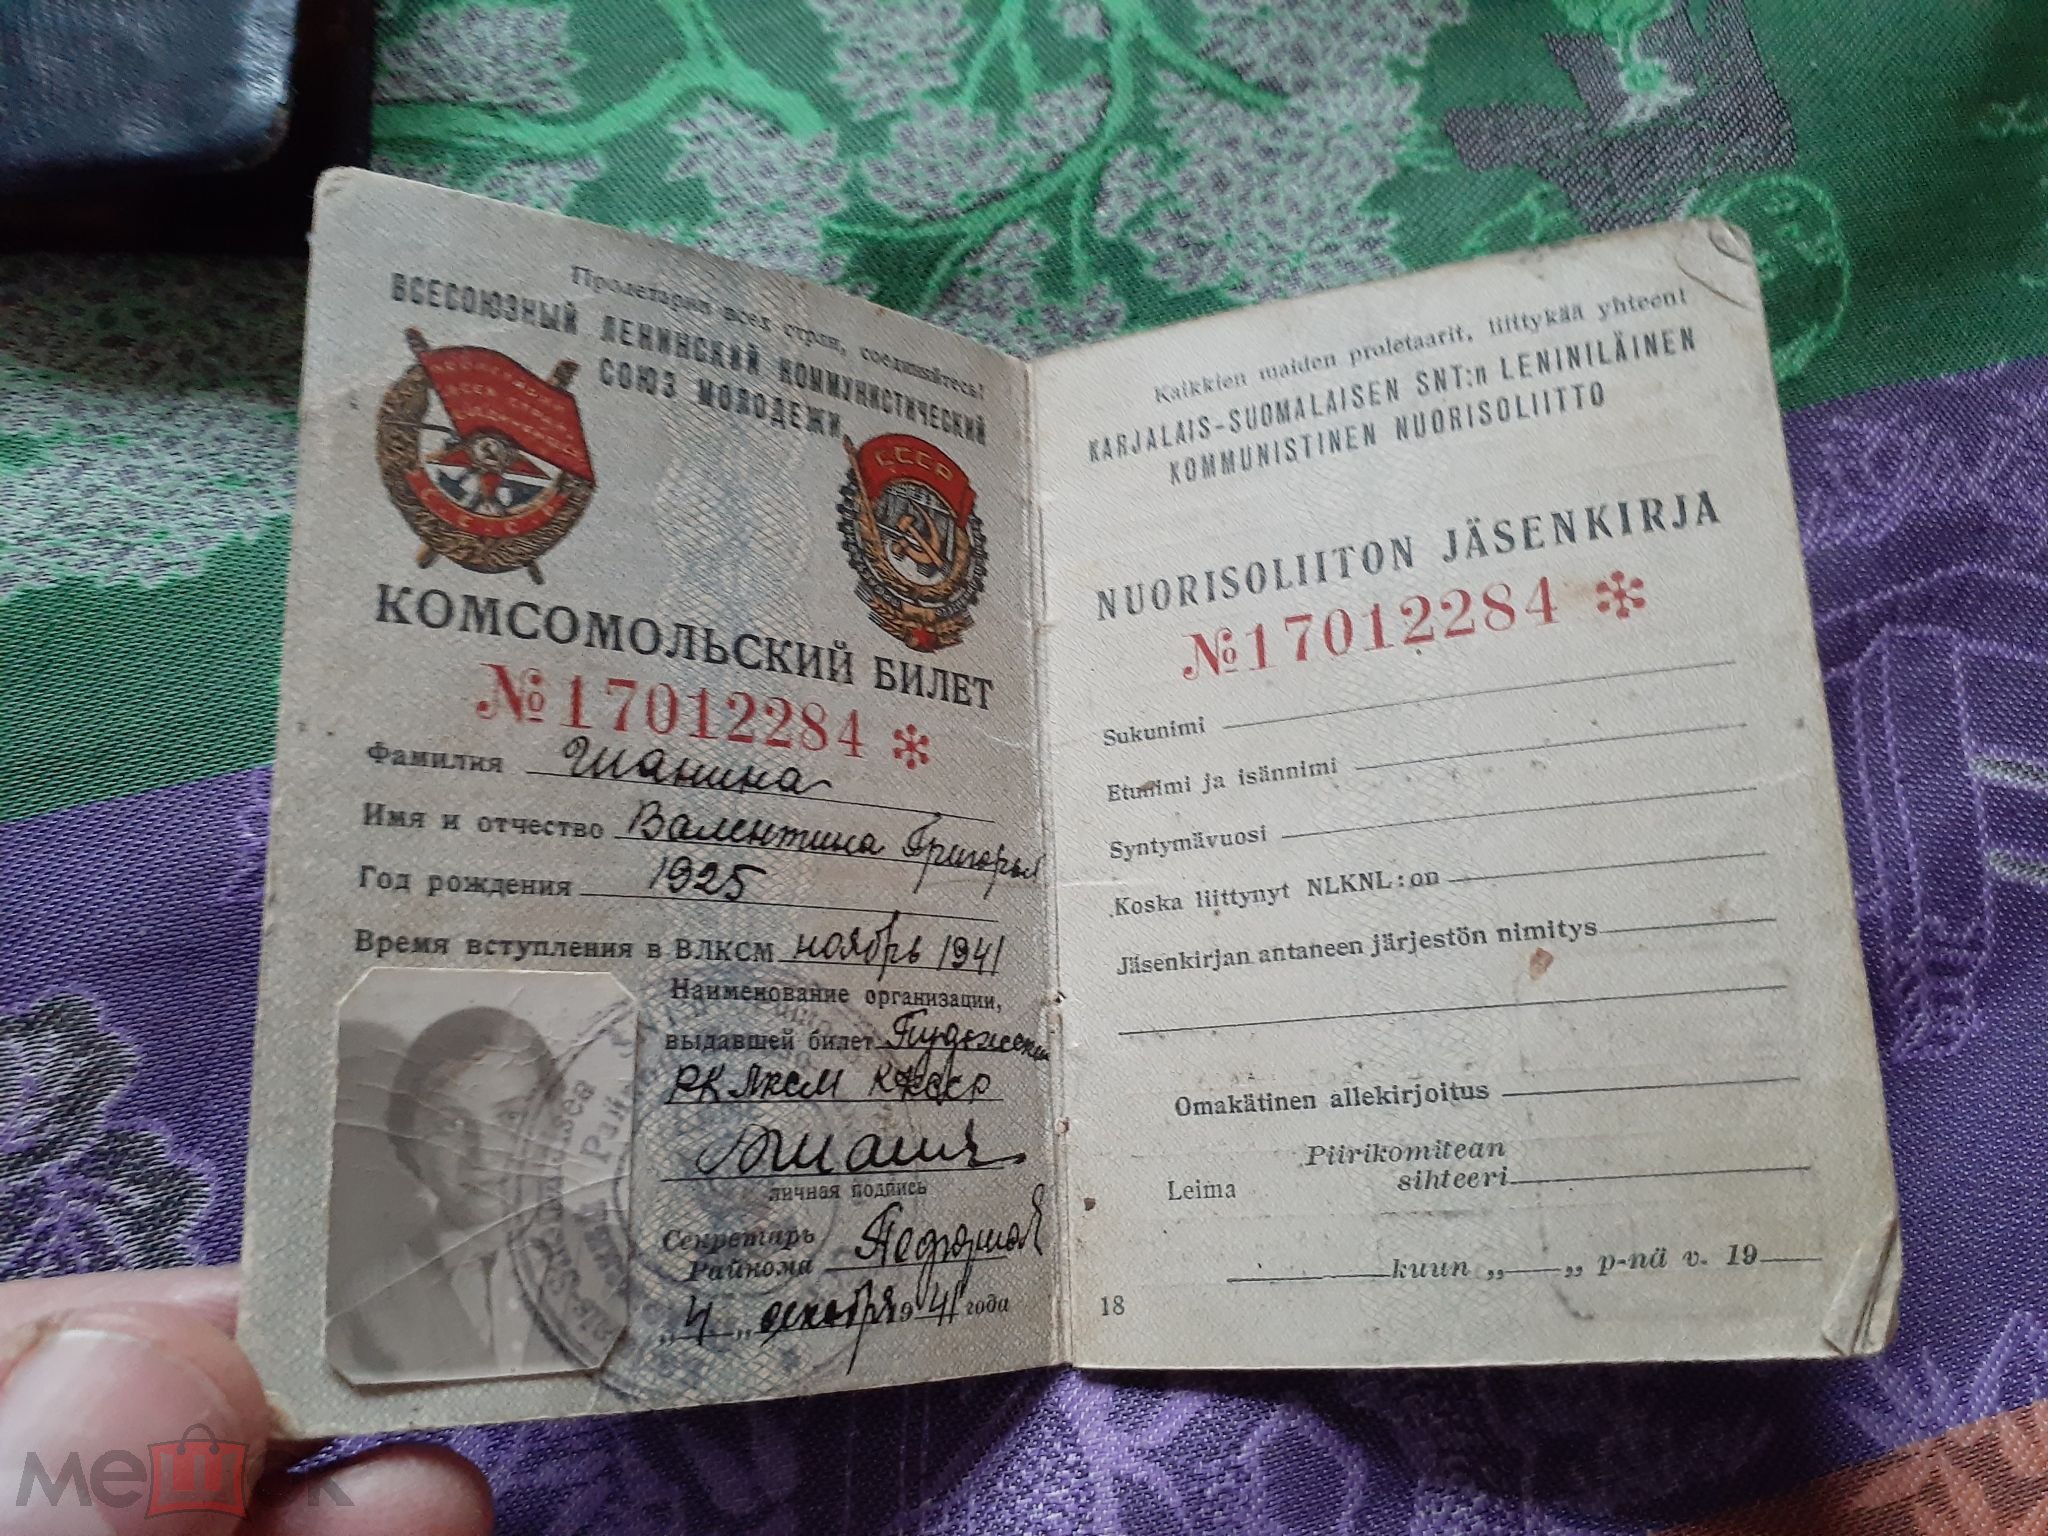 Пролетарии всех стран, соединяйтесь!
ВСЕСОЮЗНЫЙ ЛЕНИНСКИЙ КОММУНИСТИЧЕСКИЙ
СОЮЗ МОЛОДЕЖИ
ПРОЛЕТАРИИ
ВСЕХ СТРАН,
СОЕДИНЯЙТЕСЬ
СССР
СССР
КОМСОМОЛЬСКИЙ БИЛЕТ
№17012284 *
Фамилия Шанина
Имя и отчество Валентина Григорьев
Год рождения 1925
Время вступления в ВЛКСМ ноябрь 1941
Наименование организации,
выдавшей билет Пудожский
РК ЛКСМ КФССР
личная подпись
Секретарь
Райкома
„ 4 „ декабря 1941 года
Kaikkien maiden proletaarit, liittykää yhteen!
KARJALAIS-SUOMALAISEN SNT:n LENINILÄINEN
KOMMUNISTINEN NUORISOLIITTO
NUORISOLIITON JÄSENKIRJA
№17012284 *
Sukunimi
Etunimi ja isännimi
Syntymävuosi
Koska liittynyt NLKNL:on
Jäsenkirjan antaneen järjestön nimitys
Omakätinen allekirjoitus
Piirikomitean
Leima sihteeri
kuun „ „ p-nä v. 19
18
мешок